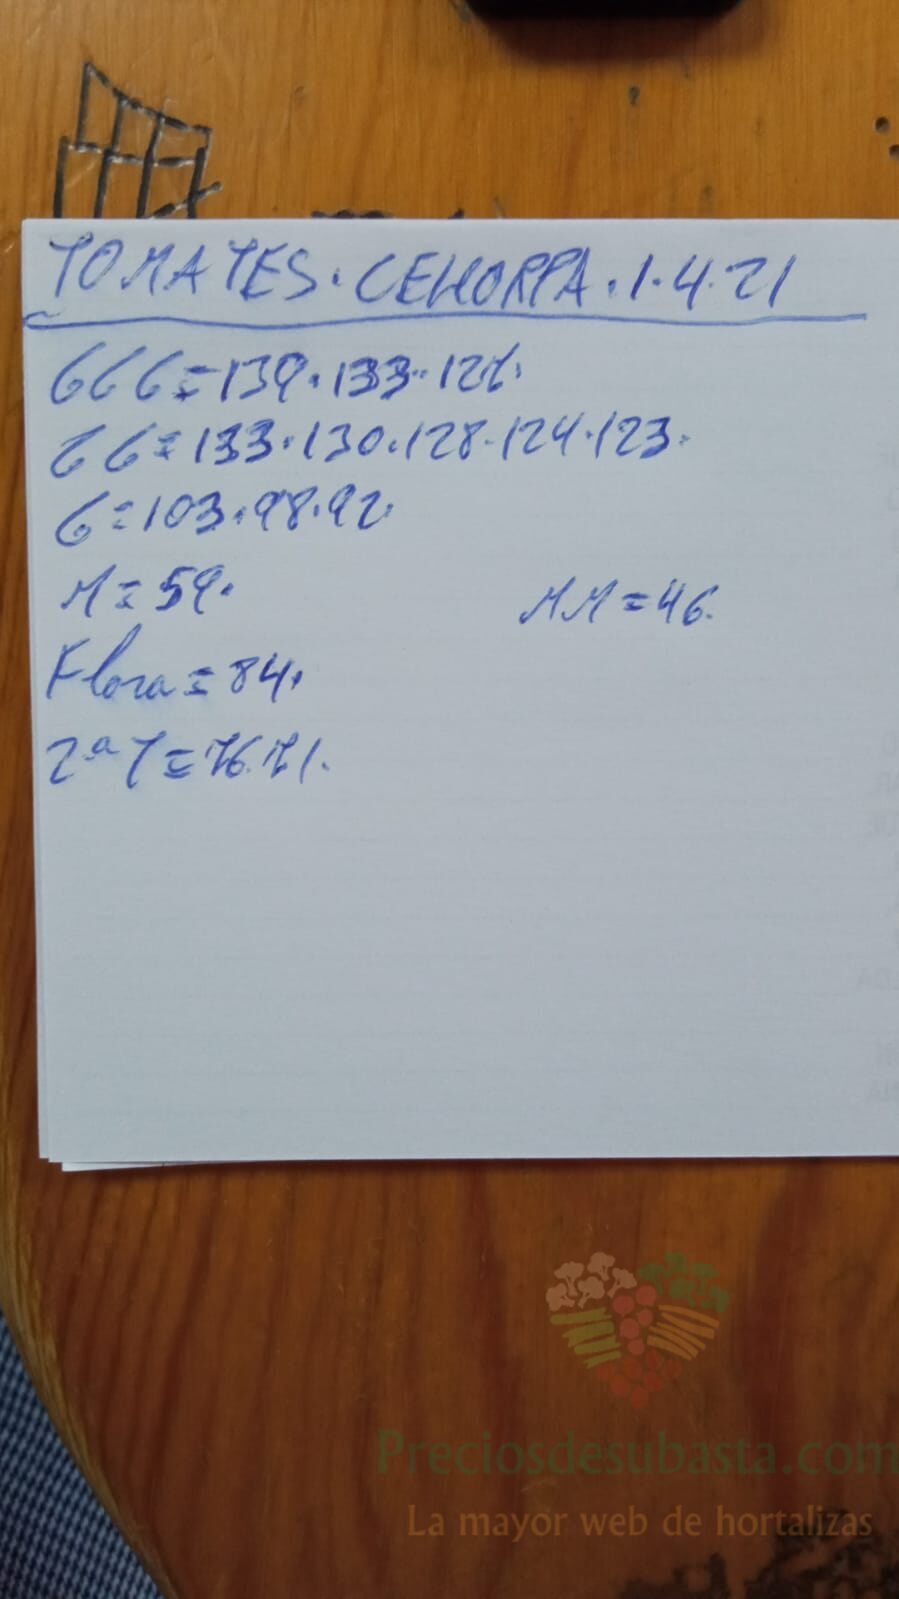 TOMATES. CEHORPA. 1.4.21
GGG = 139. 133. 127.
GG = 133. 130. 128. 124. 123.
G = 103. 98. 92.
M = 59. MM = 46.
Flora = 84.
2ª T = 76. 71.
Preciosdesubasta.com
La mayor web de hortalizas